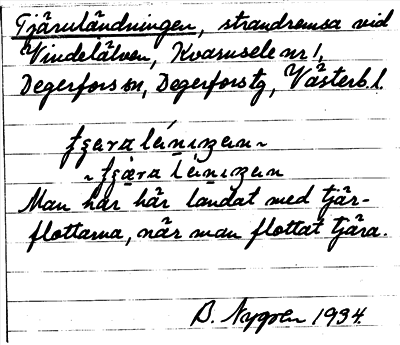 Tjäruländningen, strandremsa vid
Vindelälven, Kvarnsele nr 1,
Degerfors sn, Degerfors tg, Västerb. l.
Man har här landat med tjär-
flottarna, när man flottat tjära.
B. Nygren 1934.